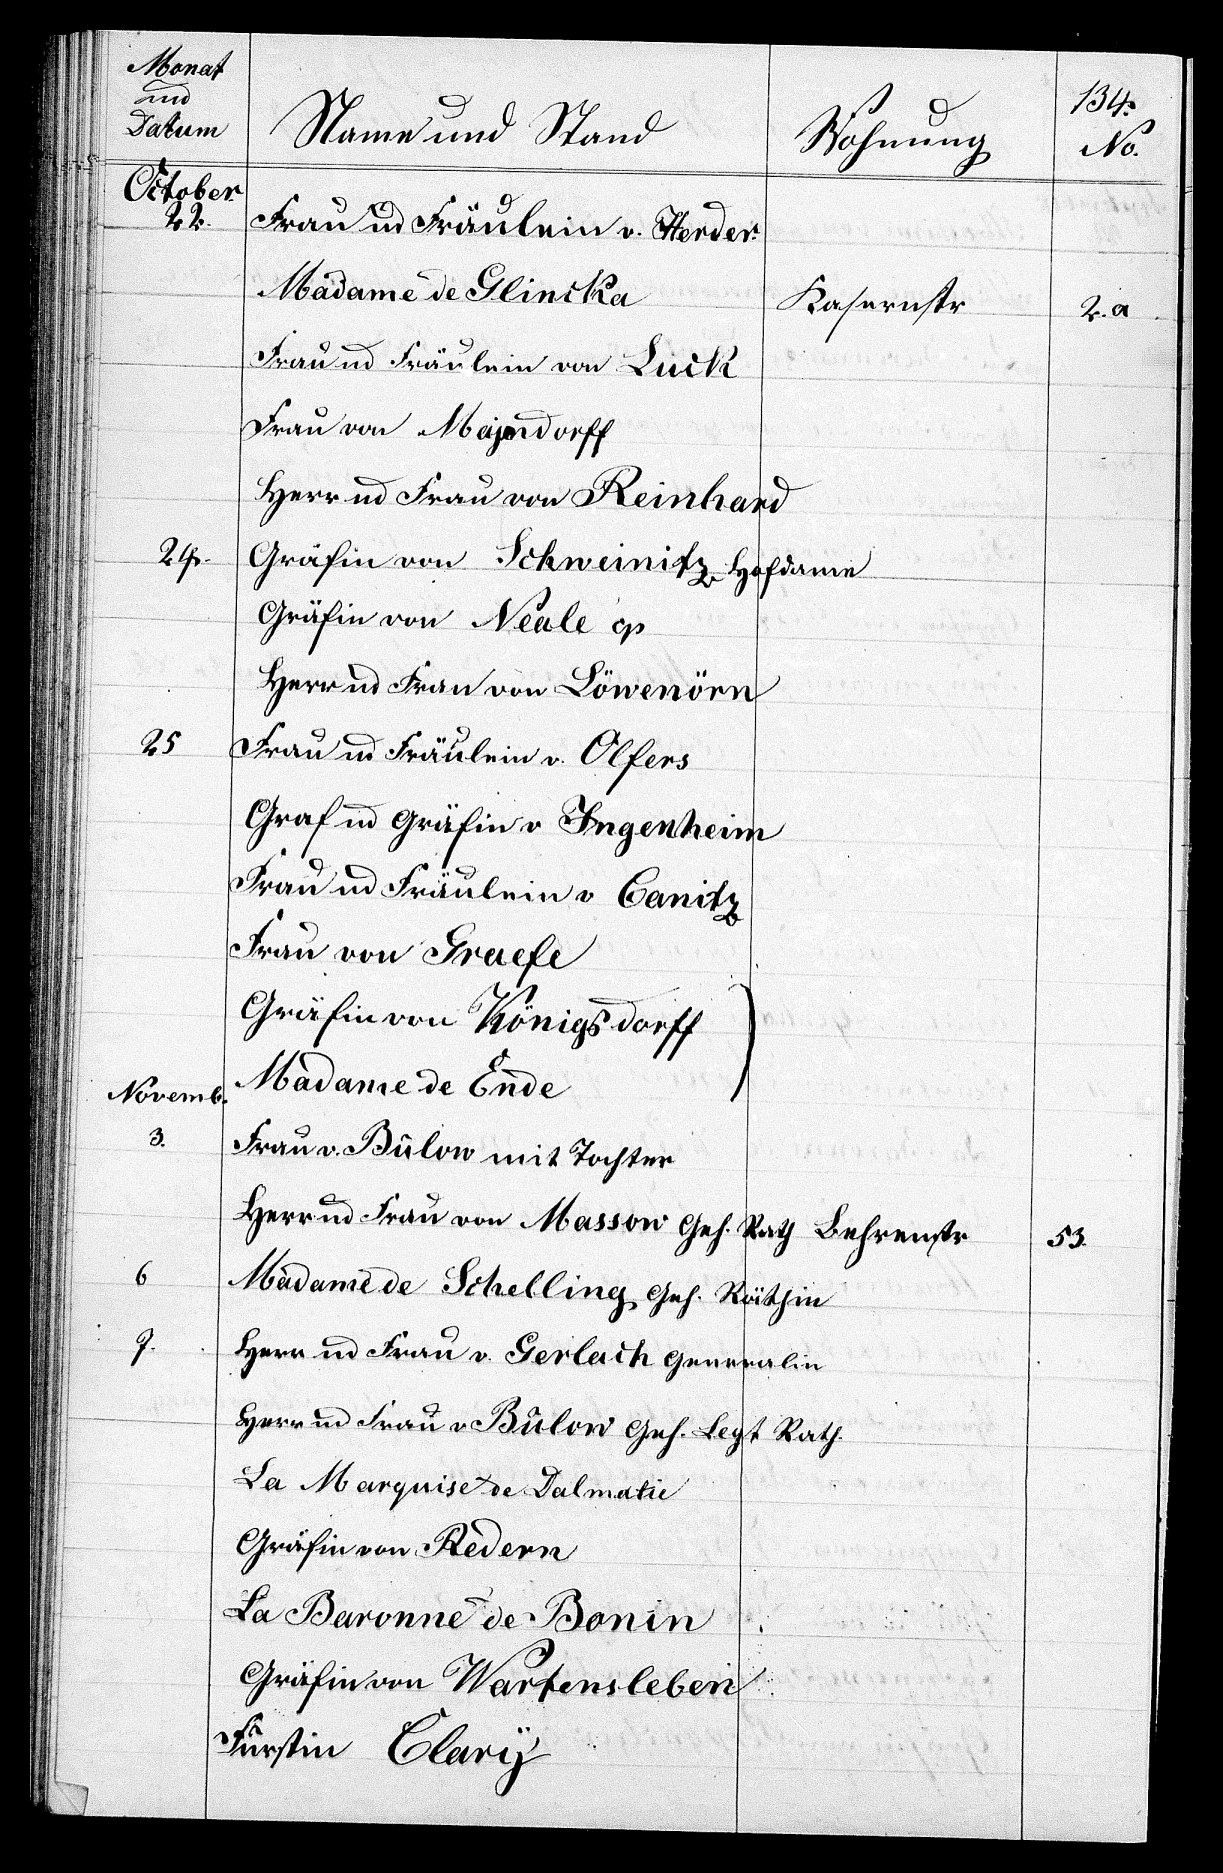 Monat
und
Datum
Name und Stand
Wohnung
134.
No.
October.
22.
Frau ud Fräulein v. Herder.
Madame de Glincka
Kasernstr
2. a
Frau ud Fräulein von Luck
Frau von Majendorff
Herr ud Frau von Reinhard
24.
Gräfin von Schweinitz Hofdame
Gräfin von Neale
Herr ud Frau von Löwenörn
25
Frau ud Fräulein v. Olfers
Graf ud Gräfin v Ingenheim
Frau ud Fräulein v Canitz
Frau von Graefe
Gräfin von Königsdorff
Madame de Ende
Novemb.
3.
Frau v. Bülow mit Tochter
Herr ud Frau von Massow Geh. Rath Behrenstr
53.
6
Madame de Schelling Geh. Räthin
7.
Herr ud Frau v. Gerlach Generalin
Herr ud Frau v Bülow Geh. Legt Rath.
La Marquise de Dalmatie
Gräfin von Redern
La Baronne de Bonin
Gräfin von Wartensleben
Fürstin Clary